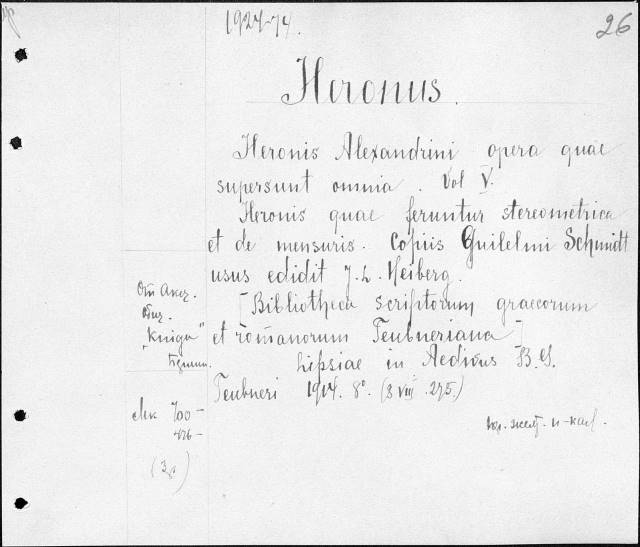 1924-74.
26
Heronus.
Heronis Alexandrini opera quae
supersunt omnia. Vol V.
Heronis quae feruntur stereometrica
et de mensuris. Copiis Guilelmi Schmidt
usus edidit J. L. Heiberg.
[Bibliotheca scriptorum graecorum
et romanorum Teubneriana]
Lipsiae in Aedibus B. G.
Teubneri 1914. 8°. (3 VIII. 275.)
От Акц.
"Книга"
Мк 700-